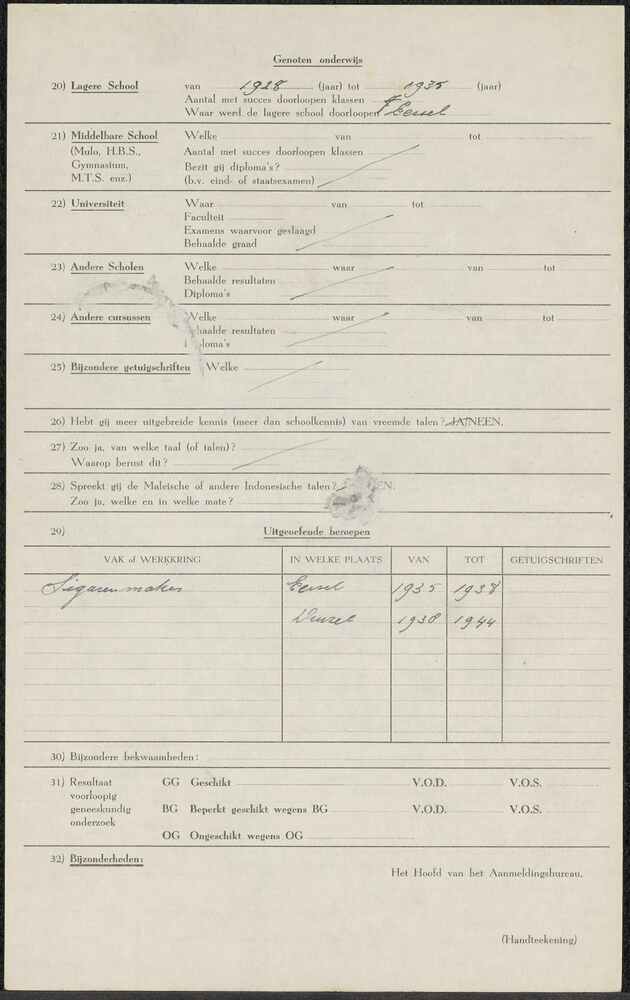 Genoten onderwijs
20) Lagere School van 1928 (jaar) tot 1935 (jaar)
Aantal met succes doorloopen klassen 7
Waar werd de lagere school doorloopen Eersel
21) Middelbare School Welke van tot
(Mulo, H.B.S., Aantal met succes doorloopen klassen
Gymnasium, Bezit gij diploma's?
M.T.S. enz.) (b.v. eind- of staatsexamen)
22) Universiteit Waar van tot
Faculteit
Examens waarvoor geslaagd
Behaalde graad
23) Andere Scholen Welke waar van tot
Behaalde resultaten
Diploma's
24) Andere cursussen Welke waar van tot
haalde resultaten
loma's
25) Bijzondere getuigschriften Welke
26) Hebt gij meer uitgebreide kennis (meer dan schoolkennis) van vreemde talen? JA/NEEN.
27) Zoo ja, van welke taal (of talen)?
Waarop berust dit?
28) Spreekt gij de Maleische of andere Indonesische talen? EN.
Zoo ja, welke en in welke mate?
29) Uitgeoefende beroepen
VAK of WERKKRING IN WELKE PLAATS VAN TOT GETUIGSCHRIFTEN
Sigarenmaker Eersel 1935 1938
1938 1944
30) Bijzondere bekwaamheden:
31) Resultaat GG Geschikt V.O.D. V.O.S.
voorloopig
geneeskundig BG Beperkt geschikt wegens BG V.O.D. V.O.S.
onderzoek
OG Ongeschikt wegens OG
32) Bijzonderheden:
Het Hoofd van het Aanmeldingsbureau.
(Handteekening)